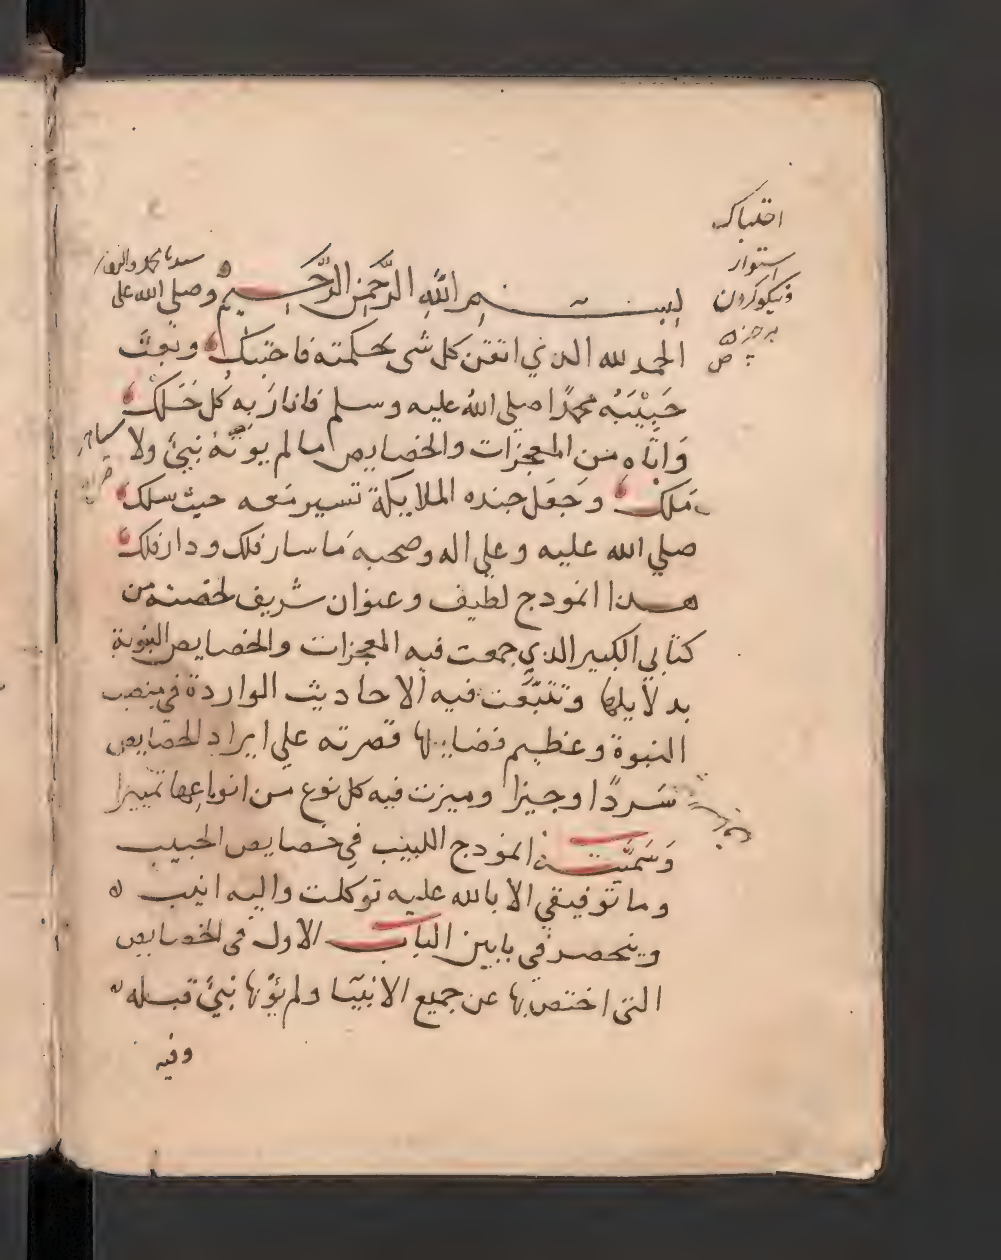 احتباك
استوار
ونيكو كردن
هر چيز
ص
بسم الله الرحمن الرحيم وصلى الله على
سيدنا محمد واله
الحمد لله الذي اتقن كل شي بحكمته فاحتبك وبعث
حَبِيْبَهُ محمدًا صلي اللهُ عليه وسلم فانارَ بِهِ كُل حَلَك
وَاتاه من المعجزات والخصايص ما لم يوتَهُ نبيٌ ولا
مَلَك وجَعَل جنده الملايكة تسير مَعه حيث سلك
صلي الله عليه وعلي اله وصحبه مَا سار فلك ودار فلك
هذا انموذج لطيف وعنوان شريف لخصته من
كتابي الكبير الذي جمعت فيه المعجزات والخصايص النبوية
بدلايلها وتتبَّعت فيه الاحاديث الواردة في منصب
النبوة وعظيم فضايلها قصرته علي ايراد الخصايص
سَردًا وجيزا وميزت فيه كل نوع من انواعها تمييزا
وَسَمَّيته انموذج اللبيب في خصايص الحبيب
وما توفيقي الا بالله عليه توكلت واليه انيب ه
وينحصر في بابين الباب الاول في الخصايص
التي اختص بها عن جميع الانبيَا ولم يُؤتها نبيٌ قبله
وفيه